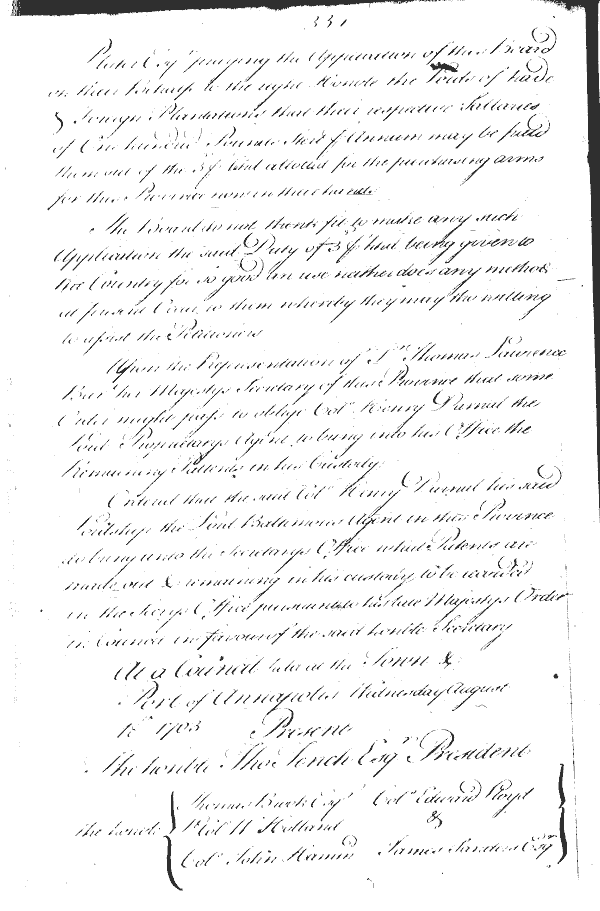 331
Plater Esqr praying the Application of this Board
on their Behalf to the right Honble the Lords of trade
& Foreign Plantations that their respective Sallaries
of One hundred Pounds Sterl p Annum may be paid
them out of the 3d p hhd allowed for the purchasing arms
for this Province now in their hands
The Board do not think fit to make any such
Application the said Duty of 3d p hhd being given to
the Country for so good an use neither does any method
at present Occur to them whereby they may be willing
to assist the Petitioners
Upon the Representation of Sr Thomas Lawrence
Bart her Majestys Secretary of this Province that some
Order might pass to oblige Colo Henry Darnal the
Lord Proprietarys Agent to bring into his Office the
Remaining Patents in his Custody
Ordered that the said Colo Henry Darnal his said
Lordship the Lord Baltamores Agent in this Province
do bring unto the Secretarys Office what Patents are
made out & remaining in his custody to be recorded
in the Secrys Office pursuant to his late Majestys Order
in Council in favour of the said honble Secretary
At a Council held at the Town &
Port of Annapolis Wednesday August
1703 Present
The honble Tho Tench Esqr President
Thomas Brook Esqr Colo Edward Lloyd
The honble Lt Col W Holland &
Colo John Hamm James Sanders Esqr